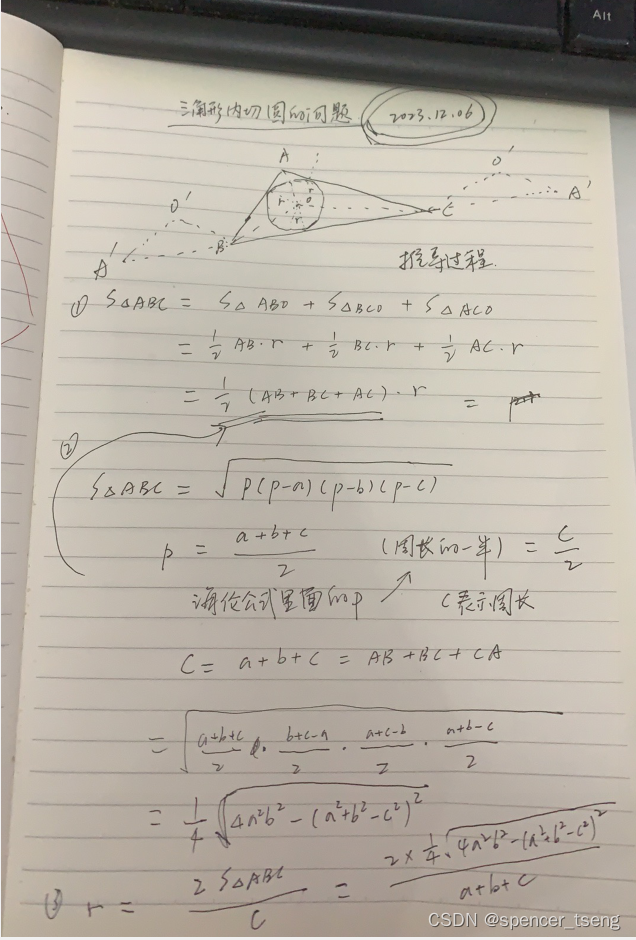 Alt
三角形内切圆的问题 2023.12.06
A
O' O'
r r C A'
r o
A' B r
推导过程
① S△ABC = S△ABO + S△BCO + S△ACO
= 1/2 AB·r + 1/2 BC·r + 1/2 AC·r
= 1/2 (AB+BC+AC)·r =
②
S△ABC = √(P(p-a)(p-b)(p-c))
p = (a+b+c)/2 (周长的一半) = C/2
海伦公式里面的p C表示周长
C = a+b+c = AB+BC+CA
= √((a+b+c)/2 · (b+c-a)/2 · (a+c-b)/2 · (a+b-c)/2)
= 1/4 √(4a²b²-(a²+b²-c²)²)
③ r = 2S△ABC/C = (2×1/4 √(4a²b²-(a²+b²-c²)²))/(a+b+c)
CSDN @spencer_tseng